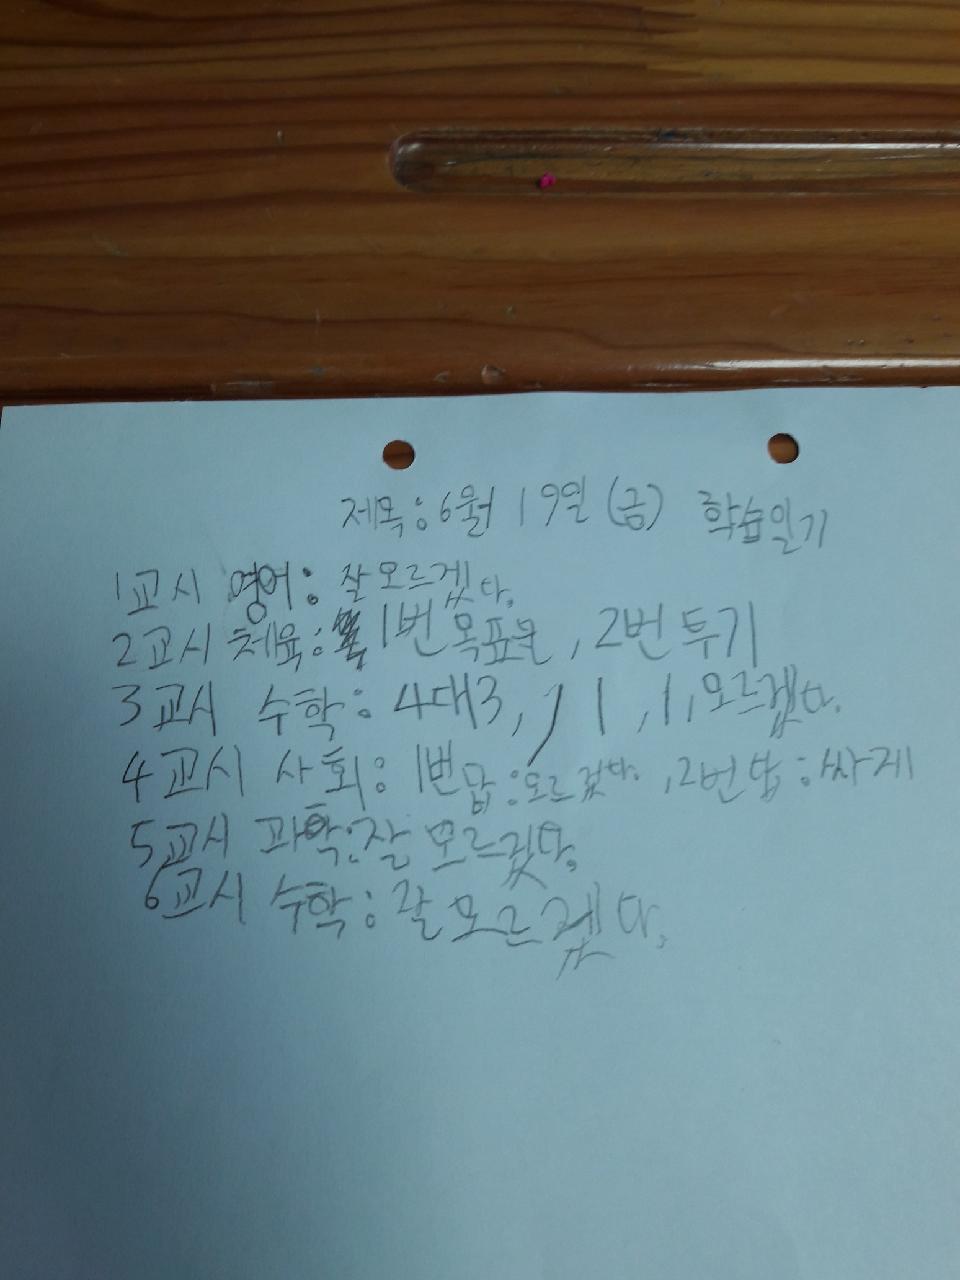 제목: 6월 19일 (금) 학습일기
1교시 영어: 잘 모르겠다.
2교시 체육: 1번 목표물, 2번 투기
3교시 수학: 4대3, 1, 1, 모르겠다.
4교시 사회: 1번 답: 모르겠다. , 2번 답: 싸게
5교시 과학: 잘 모르겠다.
6교시 수학: 잘 모르겠다.